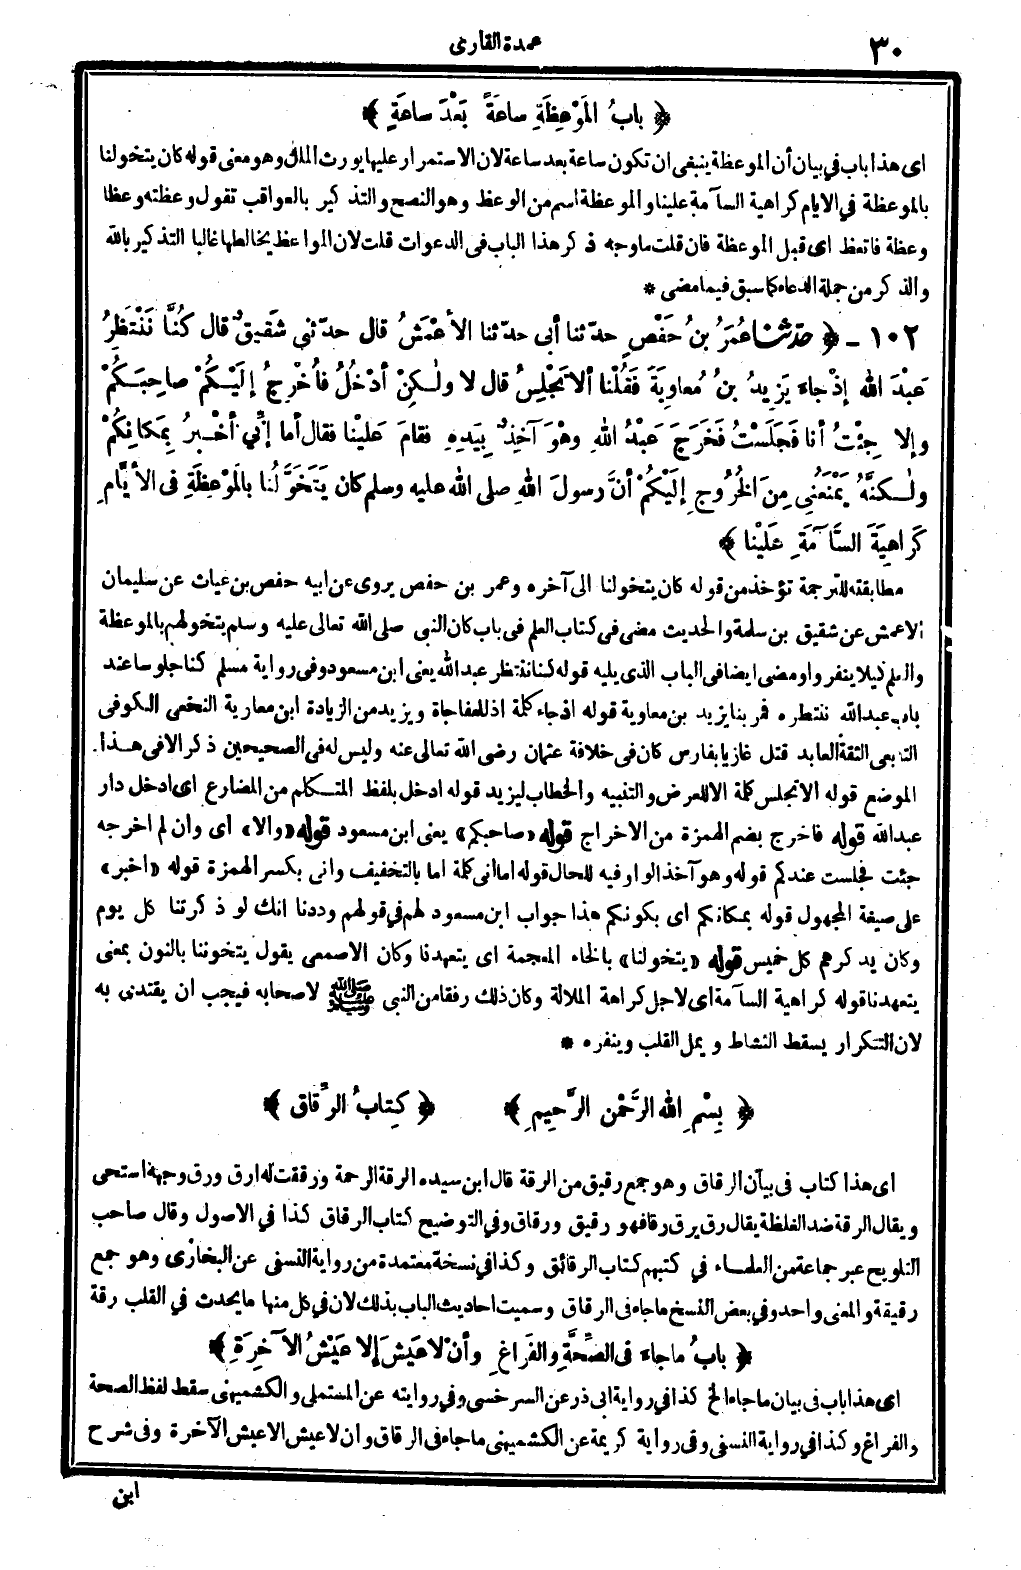 ٣٠
عمدة القارى
﴿ بابُ المَوْعِظَةِ ساعَةً بَعْدَ ساعَةٍ ﴾
اى هذا باب فى بيان أن الموعظة ينبغى ان تكون ساعة بعد ساعة لان الاستمرار عليها يورث الملل وهو معنى قوله كان يتخولنا
بالموعظة في الايام كراهية السآمة علينا والموعظة اسم من الوعظ وهو النصح والتذكير بالعواقب تقول وعظته وعظا
وعظة فاتعظ اى قبل الموعظة فان قلت ما وجه ذكر هذا الباب فى الدعوات قلت لان المواعظ يخالطها غالبا التذكير بالله
والذكر من جملة الدعاء كما سبق فيما مضى *
١٠٢ - ﴿ حدثنا عُمَرُ بنُ حَفْصٍ حدّثنا أبى حدّثنا الأعْمَشُ قال حدّثنى شَقِيقٌ قال كُنَّا نَنْتَظِرُ
عَبْدَ اللهِ إذْ جاءَ يَزِيدُ بنُ مُعاوِيَةَ فَقُلْنا ألا تَجْلِسُ قال لا ولٰكِنْ أدْخُلُ فأُخْرِجُ إلَيْكُمْ صاحِبَكُمْ
وإلا جِئْتُ أنا فَجَلَسْتُ فَخَرَجَ عَبْدُ اللهِ وهْوَ آخِذٌ بِيَدِهِ فقامَ عَلَيْنا فقال أما إنِّي أُخْبَرُ بِمَكانِكُمْ
ولٰكنَّهُ يَمْنَعُنِى مِنَ الخُرُوجِ إلَيْكُمْ أنَّ رسولَ اللهِ صلى الله عليه وسلم كان يَتَخَوَّلُنا بالمَوْعِظَةِ فى الأيَّامِ
كَراهِيَةَ السَّآمَةِ عَلَيْنا ﴾
مطابقته للترجمة تؤخذ من قوله كان يتخولنا الى آخره وعمر بن حفص يروى عن ابيه حفص بن غياث عن سليمان
الاعمش عن شقيق بن سلمة والحديث مضى فى كتاب العلم فى باب كان النبى صلى الله تعالى عليه وسلم يتخولهم بالموعظة
والعلم كيلا ينفروا ومضى ايضا فى الباب الذى يليه قوله كنا ننتظر عبدالله يعنى ابن مسعود وفى رواية مسلم كنا جلوسا عند
باب عبدالله ننتظره فمر بنا يزيد بن معاوية قوله اذ جاء كلمة اذ للمفاجاة ويزيد من الزيادة ابن معاوية النخعى الكوفى
التابعى الثقة العابد قتل غازيا بفارس كان فى خلافة عثمان رضى الله تعالى عنه وليس له فى الصحيحين ذكر الا فى هذا
الموضع قوله الا تجلس كلمة الا للعرض والتنبيه والخطاب ليزيد قوله ادخل بلفظ المتكلم من المضارع اى ادخل دار
عبدالله قوله فاخرج بضم الهمزة من الاخراج قوله «صاحبكم» يعنى ابن مسعود قوله «والا» اى وان لم اخرجه
جئت فجلست عندكم قوله وهو آخذ الواو فيه للحال قوله اما انى كلمة اما بالتخفيف وانى بكسر الهمزة قوله «اخبر»
على صيغة المجهول قوله بمكانكم اى بكونكم هذا جواب ابن مسعود لهم في قولهم وددنا انك لو ذكرتنا كل يوم
وكان يذكرهم كل خميس قوله «يتخولنا» بالخاء المعجمة اى يتعهدنا وكان الاصمعى يقول يتخوننا بالنون بمعنى
يتعهدنا قوله كراهية السآمة اى لاجل كراهة الملالة وكان ذلك رفقا من النبى ﷺ لاصحابه فيجب ان يقتدى به
لان التكرار يسقط النشاط ويمل القلب وينفره *
﴿ بِسْمِ اللهِ الرَّحْمٰنِ الرَّحِيمِ ﴾ ﴿ كِتابُ الرِّقاقِ ﴾
اى هذا كتاب فى بيان الرقاق وهو جمع رقيق من الرقة قال ابن سيده الرقة الرحمة ورققت له ارق ورق وجهه استحى
ويقال الرقة ضد الغلظة يقال رق يرق رقا فهو رقيق ورقاق وفي التوضيح كتاب الرقاق كذا في الاصول وقال صاحب
التلويح عبر جماعة من العلماء في كتبهم كتاب الرقائق وكذا في نسخة معتمدة من رواية النسفى عن البخارى وهو جمع
رقيقة والمعنى واحد وفي بعض النسخ ما جاء فى الرقاق وسميت احاديث الباب بذلك لان في كل منها ما يحدث في القلب رقة
﴿ بابُ ما جاءَ فى الصِّحَّةِ والفَراغِ وأنْ لا عَيْشَ إلا عَيْشُ الآخِرَةِ ﴾
اى هذا باب فى بيان ما جاء الخ كذا في رواية ابى ذر عن السرخسى وفي روايته عن المستملى والكشميهنى سقط لفظ الصحة
والفراغ وكذا في رواية النسفى وفى رواية كريمة عن الكشميهنى ما جاء فى الرقاق وان لا عيش الا عيش الآخرة وفى شرح
ابن